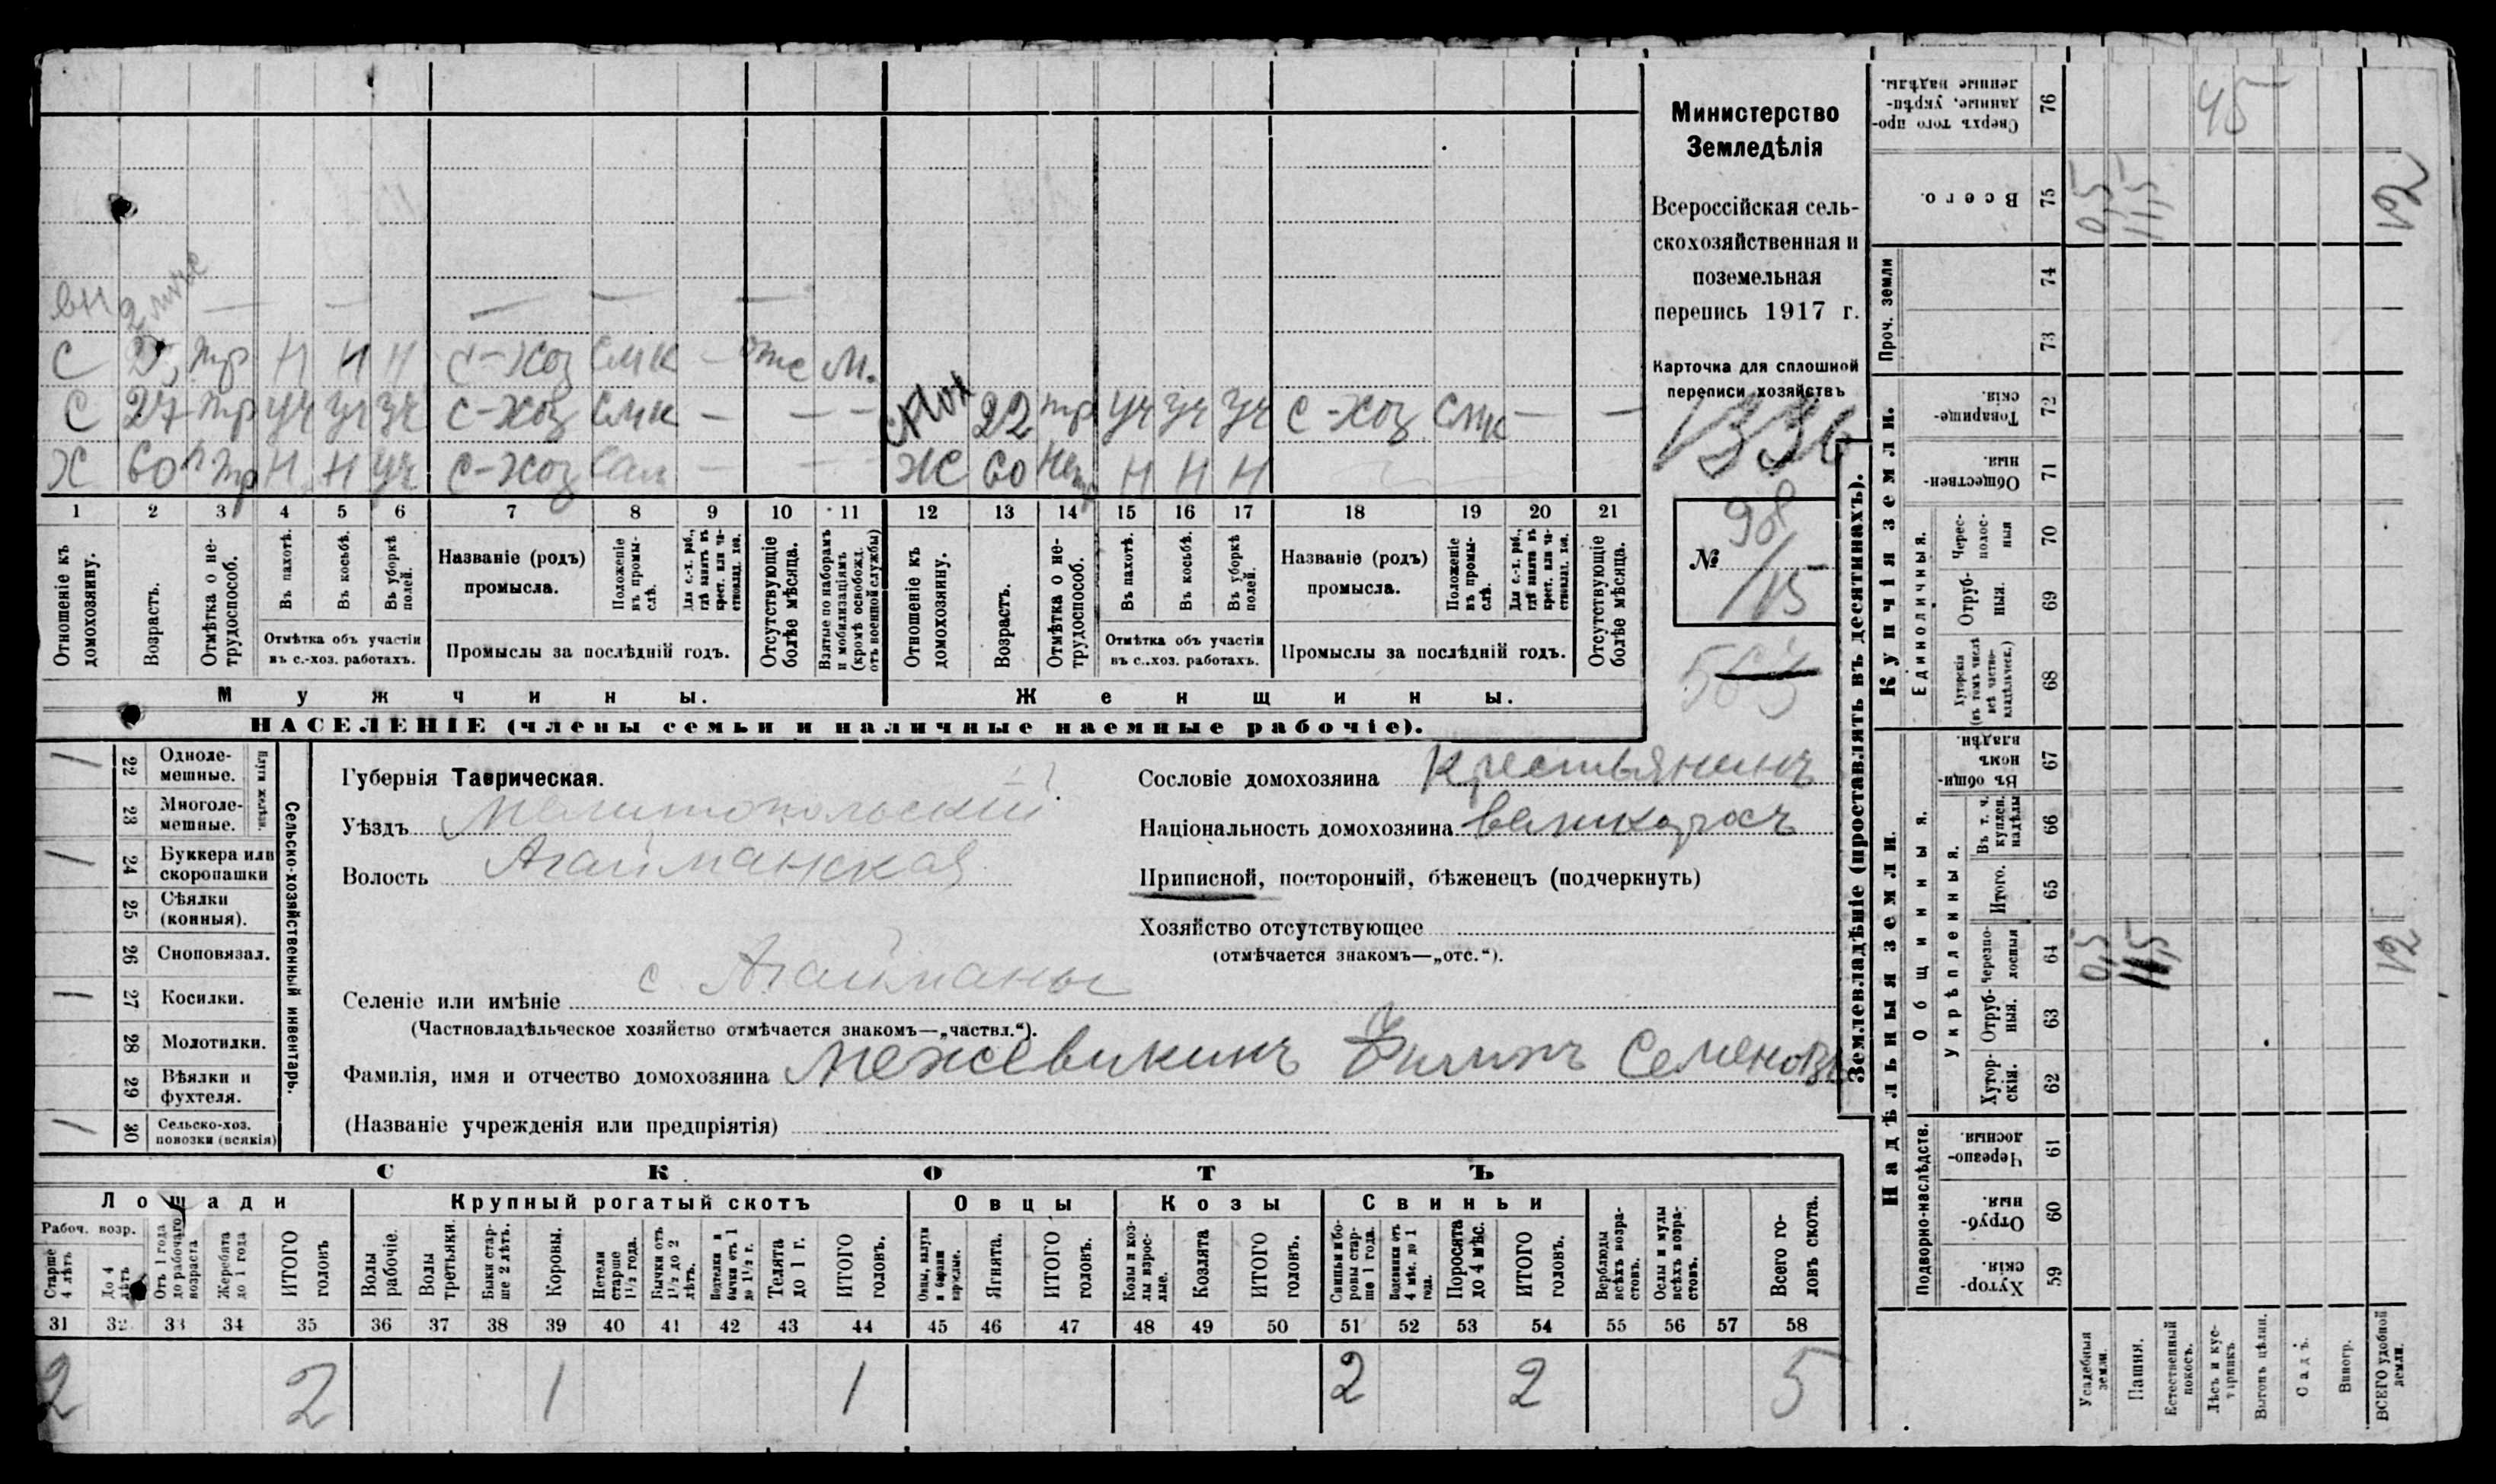 вн 2 мес — — — — —
С 25 тр Н Н Н С-Хоз Смк — отс М.
С 27 тр уч уч уч С-Хоз Смк — — — снох 22 тр уч уч уч С-Хоз Смк — —
Х 60 п тр Н Н уч С-Хоз Сам — — — Ж 60 Нетр Н Н Н
1 2 3 4 5 6 7 8 9 10 11 12 13 14 15 16 17 18 19 20 21
Отношеніе къ домохозяину.
Возрастъ.
Отмѣтка о не-трудоспособ.
Въ пахотѣ.
Въ косьбѣ.
Въ уборкѣ полей.
Отмѣтка объ участіи
въ с.-хоз. работахъ.
Названіе (родъ)
промысла.
Положеніе въ промы-слѣ.
Для с.-х. раб., гдѣ занятъ въ крест. или ча-стновлад. хоз.
Промыслы за послѣдній годъ.
Отсутствующіе болѣе мѣсяца.
Взятые по наборамъ и мобилизаціямъ (кромѣ освобожд. отъ военной службы)
Отношеніе къ домохозяину.
Возрастъ.
Отмѣтка о не-трудоспособ.
Въ пахотѣ.
Въ косьбѣ.
Въ уборкѣ полей.
Отмѣтка объ участіи
въ с.-хоз. работахъ.
Названіе (родъ)
промысла.
Положеніе въ промы-слѣ.
Для с.-х. раб., гдѣ занятъ въ крест. или ча-стновлад. хоз.
Промыслы за послѣдній годъ.
Отсутствующіе болѣе мѣсяца.
Мужчины.
Женщины.
НАСЕЛЕНІЕ (члены семьи и наличные наемные рабочіе).
Министерство
Земледѣлія
Всероссійская сель-
скохозяйственная и
поземельная
перепись 1917 г.
Карточка для сплошной
переписи хозяйствъ
1336
№ 98/15
563
/ 22 Одноле-мешные.
23 Многоле-мешные.
Плуги желѣзн.
/ 24 Буккера или скоропашки
25 Сѣялки (конныя).
26 Сноповязал.
/ 27 Косилки.
28 Молотилки.
29 Вѣялки и фухтеля.
/ 30 Сельско-хоз. повозки (всякія)
Сельско-хозяйственный инвентарь.
Губернія Таврическая.
Уѣздъ Мелитопольскій
Волость Агайманская
Селеніе или имѣніе с. Агайманы
(Частновладѣльческое хозяйство отмѣчается знакомъ—„частвл.“).
Фамилія, имя и отчество домохозяина Межевикинъ Филипъ Семеновъ
(Названіе учрежденія или предпріятія)
Сословіе домохозяина Крестьянинъ
Національность домохозяина великоросъ
Приписной, посторонній, бѣженецъ (подчеркнуть)
Хозяйство отсутствующее
(отмѣчается знакомъ—„отс.“).
СКОТЪ
Лошади
Крупный рогатый скотъ
Овцы
Козы
Свиньи
Рабоч. возр.
Старше 4 лѣтъ
До 4 лѣтъ
Отъ 1 года до рабочаго возраста
Жеребята до 1 года
ИТОГО головъ
Волы рабочіе.
Волы третьяки.
Быки стар-ше 2 лѣтъ.
Коровы.
Нетели старше 1½ года.
Бычки отъ 1½ до 2 лѣтъ.
Подтелки и бычки отъ 1 до 1½ г.
Телята до 1 г.
ИТОГО головъ.
Овцы, валухи и бараны взрослые.
Ягнята.
ИТОГО головъ.
Козы и коз-лы взрос-лые.
Козлята
ИТОГО головъ.
Свиньи и бо-ровы стар-ше 1 года.
Подсвинки отъ 4 мѣс. до 1 года.
Поросята до 4 мѣс.
ИТОГО головъ.
Верблюды всѣхъ возра-стовъ.
Ослы и мулы всѣхъ возра-стовъ.
Всего го-ловъ скота.
31 32 33 34 35 36 37 38 39 40 41 42 43 44 45 46 47 48 49 50 51 52 53 54 55 56 57 58
2 2 1 1 2 2 5
Землевладѣніе (проставлять въ десятинахъ).
Сверхъ того про-данные, укрѣп-ленные надѣлы. 76 45
Всего. 75 0,5 11,5 12
Проч. земли
74
73
Купчія земли.
Товарище-скія. 72
Обществен-ныя. 71
Единоличныя.
Черес-полос-ныя 70
Отруб-ныя. 69
Хуторскія (въ томъ числѣ всѣ частно-владѣльческ.) 68
Надѣльныя земли.
Общинныя.
Въ общи-номъ владѣн. 67
Укрѣпленныя.
Въ т. ч. куплен. надѣлы 66
Итого. 65
Черезпо-лосныя 64 0,5 11,5 12
Отруб-ныя. 63
Хутор-скія. 62
Подворно-наслѣдств.
Черезпо-лосныя. 61
Отруб-ныя. 60
Хутор-скія. 59
Усадебныя земли.
Пашня.
Естественный покосъ.
Лѣсъ и кус-тарникъ
Выгонъ цѣлин.
Садъ.
Виногр.
ВСЕГО удобной земли.